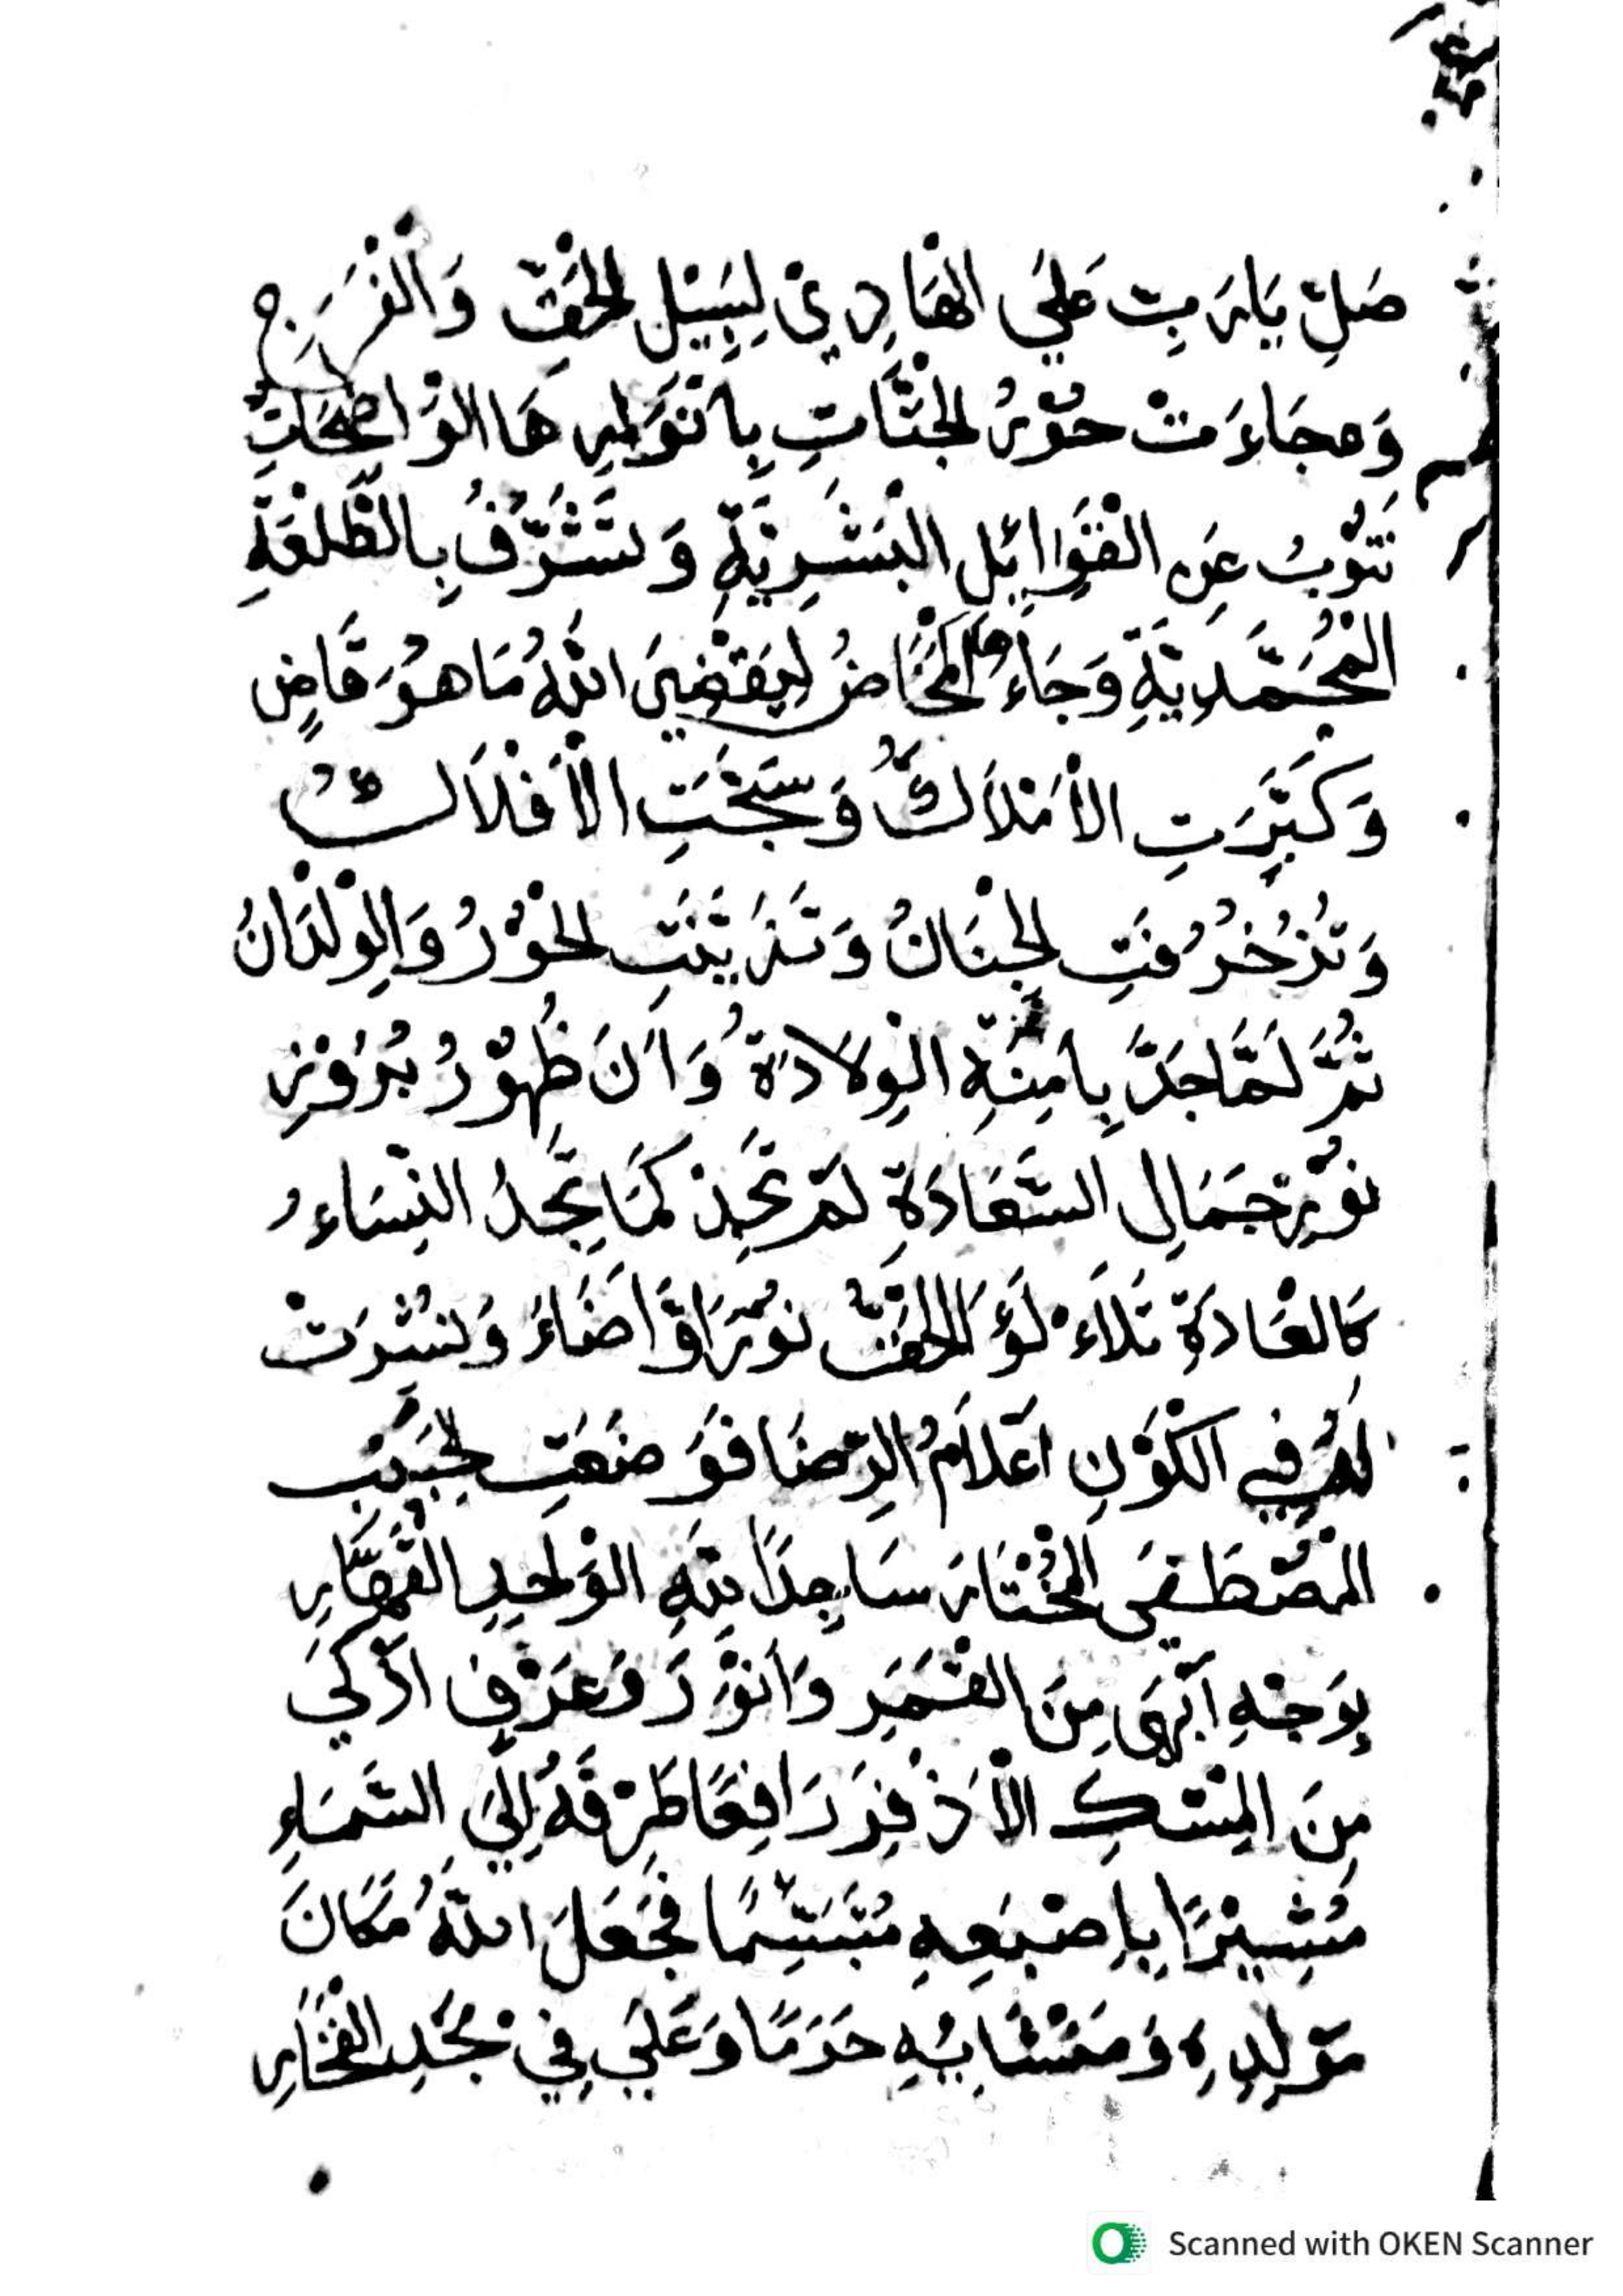 صَلِّ يَارَبِّ عَلَى الْهَادِيْ لِسَبِيْلِ الْحَقِّ وَالْفَرَجِ
وَجَاءَتْ حُوْرُ الْجَنَّاتِ بِأَنْوَارِهَا الْوَاضِحَاتِ
تَنُوْبُ عَنِ الْقَوَابِلِ الْبَشَرِيَّةِ وَتَشَرَّفُ بِالطَّلْعَةِ
الْمُحَمَّدِيَّةِ وَجَاءَهَا الْمَخَاضُ لِيَقْضِيَ اللهُ مَا هُوَ قَاضٍ
وَكَبَّرَتِ الْأَمْلَاكُ وَسَبَّحَتِ الْأَفْلَاكُ
وَتُزُخْرُفَتِ الْجِنَانُ وَتَزَيَّنَتِ الْحُوْرُ وَالْوِلْدَانُ
ثُمَّ لَمَّا جَدَّ بِآمِنَةِ الْوِلَادَةُ وَآنَ ظُهُوْرُ بُرُوْزِ
نُوْرِ جَمَالِ السَّعَادَةِ لَمْ تَجِدْ كَمَا تَجِدُ النِّسَاءُ
كَالْعَادَةِ تَلَاءْلَؤَ الْحَقُّ نُوْرًا وَّأَضَاءَ وَنُشِرَتْ
لَهُ فِي الْكَوْنِ أَعْلَامُ الرِّضَا فَوَضَعَتِ الْحَبِيْبَ
الْمُصْطَفَى الْمُخْتَارَ سَاجِدًا لِلّٰهِ الْوَاحِدِ الْقَهَّارِ
بِوَجْهٍ أَبْهَى مِنَ الْقَمَرِ وَأَنْوَرَ وَعَرْفٍ أَذْكَى
مِنَ الْمِسْكِ الْأَذْفَرِ رَافِعًا طَرْفَهُ إِلَى السَّمَاءِ
مُشِيْرًا بِإِصْبَعِهِ مُتَبَسِّمًا فَجَعَلَ اللهُ مَكَانَ
مَوْلِدِهِ وَمَنْشَائِهِ حَرَمًا وَعَلَى فِيْ مَجْدِ الْفَخَارِ
Scanned with OKEN Scanner